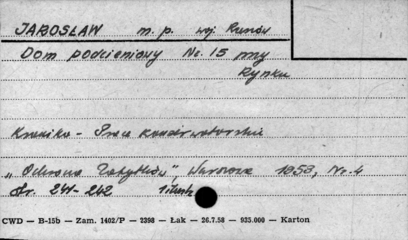 JAROSŁAW m. p. woj. Rzeszów
Dom podcieniowy Nr. 15 przy
Rynku
Kronika - Prace konserwatorskie
„Ochrona Zabytków", Warszawa 1958, Nr. 4
str. 241-242 1 ilustr.
CWD — B-15b — Zam. 1402/P — 2398 — Łak — 26.7.58 — 935.000 — Karton